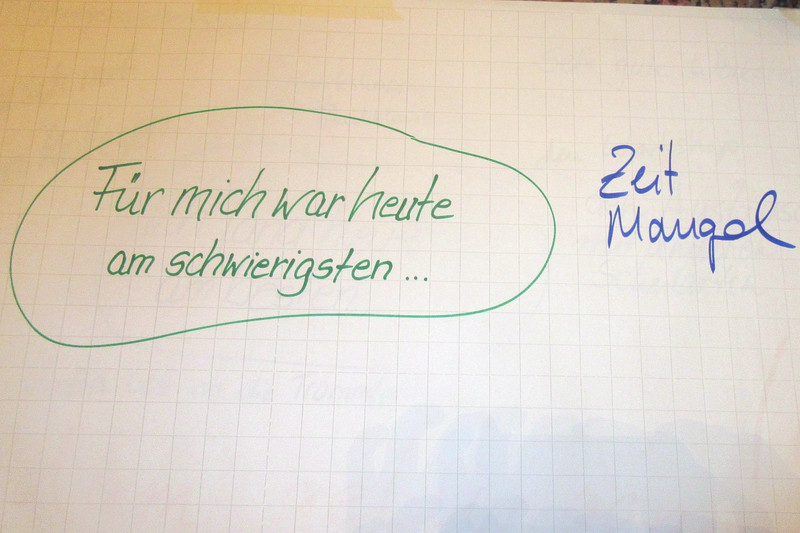 Für mich war heute
am schwierigsten ...
Zeit
Mangel